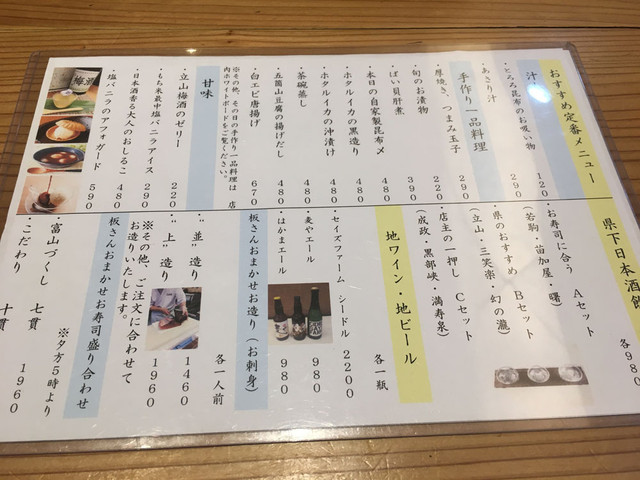 おすすめ定番メニュー
汁
・とろろ昆布のお吸い物 120
・あさり汁 290
手作り一品料理
・厚焼き、つまみ玉子 220
・旬のお漬物 390
・ばい貝肝煮 480
・本日の自家製昆布〆 480
・ホタルイカの黒造り 480
・ホタルイカの沖漬け 480
・茶碗蒸し 480
・五箇山豆腐の揚げだし 480
・白エビ唐揚げ 670
※その他、その日の手作り一品料理は 店
内ホワイトボードをご覧ください。
甘味
・立山梅酒のゼリー 220
・もち米最中塩バニラアイス 290
・日本酒香る大人のおしるこ 480
・塩バニラのアフォガード 590
県下日本酒
各980
・お寿司に合う Aセット
(若駒・苗加屋・曙)
・県のおすすめ Bセット
(立山・三笑楽・幻の瀧)
・店主の一押し Cセット
(成政・黒部峡・満寿泉)
地ワイン・地ビール
各一瓶
・セイズファーム シードル 2200
・麦やエール 980
・はかまエール 980
板さんおまかせお造り(お刺身)
各一人前
・"並"造り 1460
・"上"造り 1960
※その他、ご注文に合わせて
お造りいたします。
板さんおまかせお寿司盛り合わせ
※夕方5時より
・富山づくし 七貫 1960
・こだわり 十貫